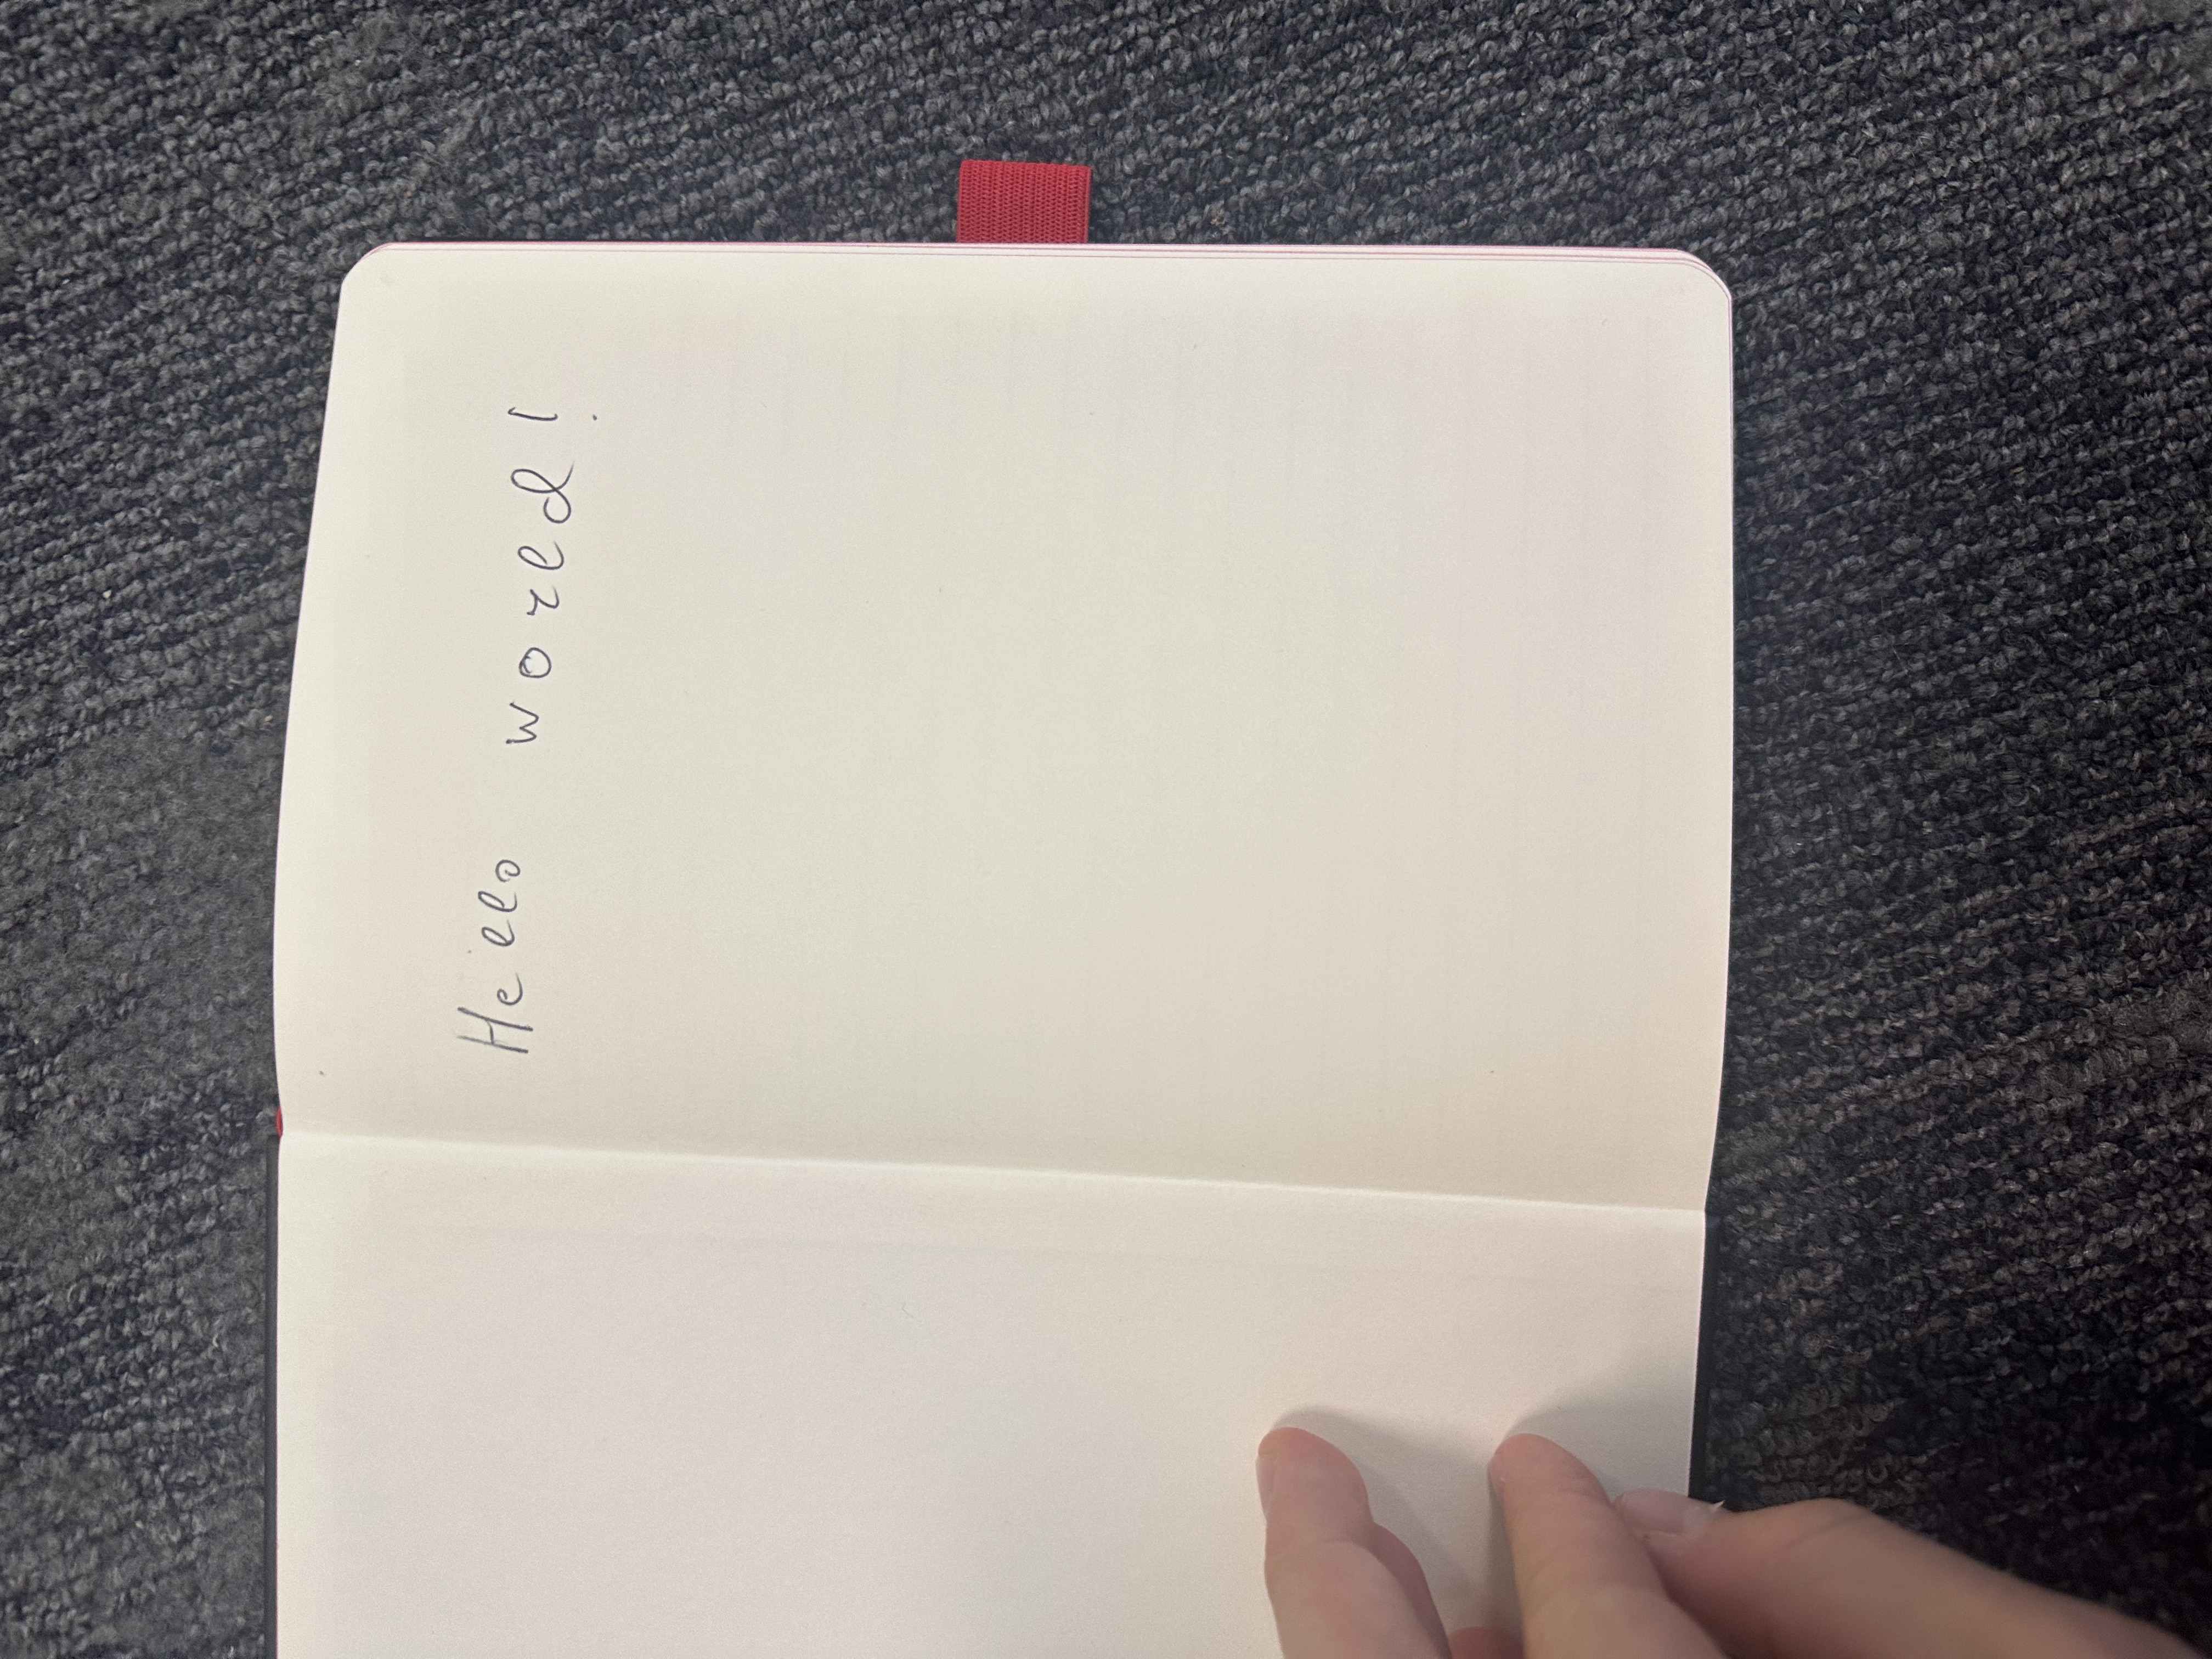 Hello world!